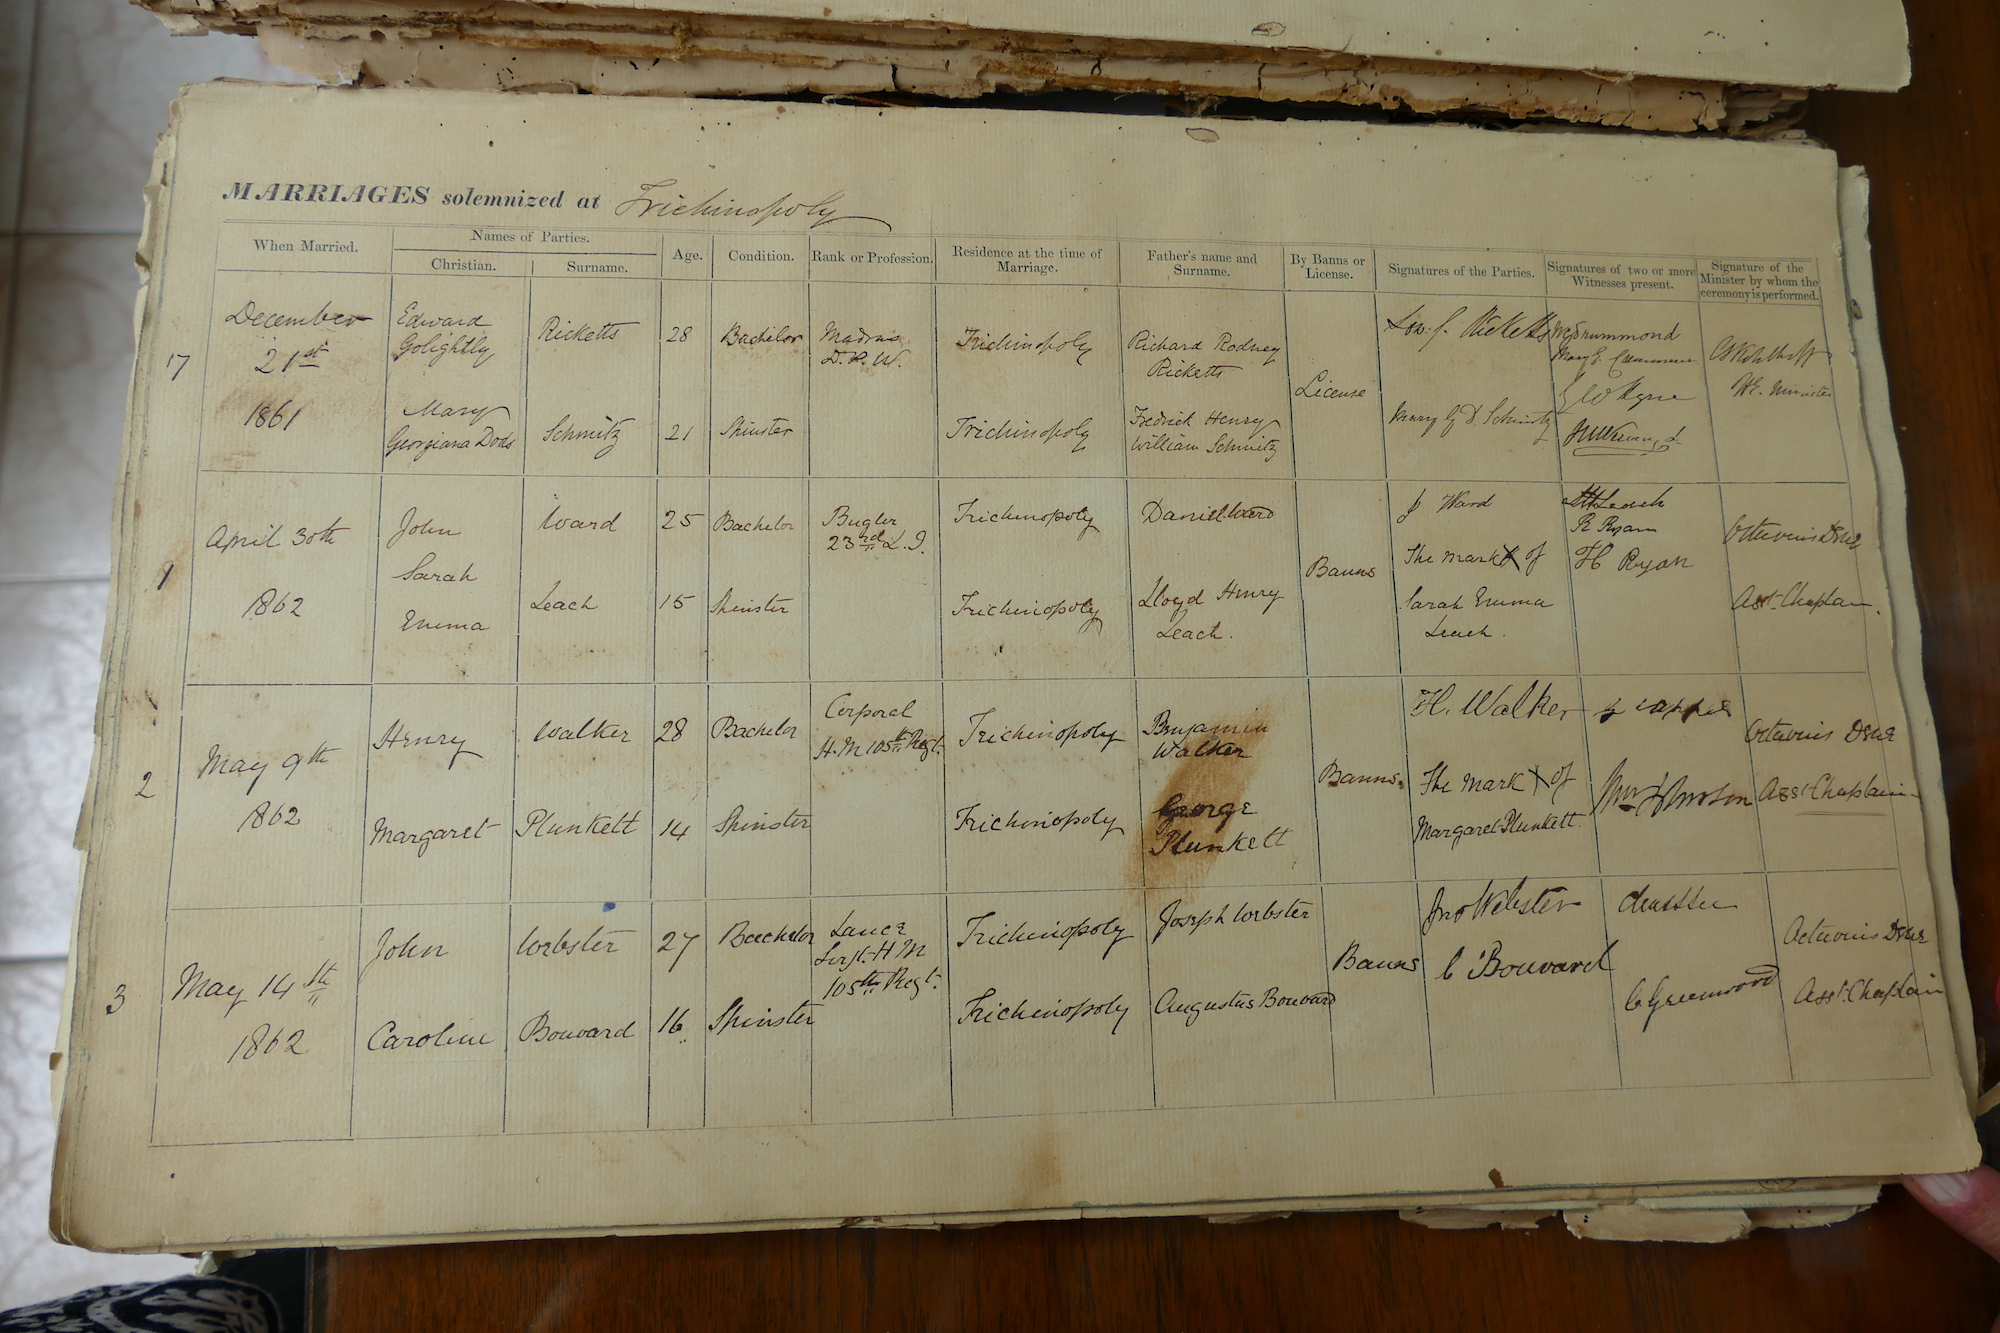 MARRIAGES solemnized at Trichinopoly
When Married.
Names of Parties.
Christian.
Surname.
Age.
Condition.
Rank or Profession.
Residence at the time of
Marriage.
Father's name and
Surname.
By Banns or
License.
Signatures of the Parties.
Signatures of two or more
Witnesses present.
Signature of the
Minister by whom the
ceremony is performed.
17
December
21st
1861
Edward
Golightly
Ricketts
28
Bachelor
Madras
D.P.W.
Trichinopoly
Richard Rodney
Ricketts
License
Ricketts
Drummond
Mary E
Mary
Georgiana Dods
Schmitz
21
Spinster
Trichinopoly
Fredrick Henry
William Schmitz
Mary G D Schmitz
Minister
1
April 30th
1862
John
Ward
25
Bachelor
Bugler
23rd L.I.
Trichinopoly
Daniel Ward
Banns
J Ward
Leach
R Ryan
H Ryan
Sarah
Emma
Leach
15
Spinster
Trichinopoly
Lloyd Henry
Leach.
The mark X of
Sarah Emma
Leach.
Octavius
Asst. Chaplain.
2
May 9th
1862
Henry
Walker
28
Bachelor
Corporal
H.M 105th Regt.
Trichinopoly
Benjamin
Walker
Banns.
H. Walker
Margaret
Plunkett
14
Spinster
Trichinopoly
George
Plunkett
The mark X of
Margaret Plunkett
Johnson
Octavius
Asst Chaplain
3
May 14th
1862
John
Webster
27
Bachelor
Lance
Sergt. H M
105th Regt.
Trichinopoly
Joseph Webster
Banns
Jno Webster
Caroline
Bouvard
16
Spinster
Trichinopoly
Augustus Bouvard
C Bouvard
C Greenwood
Octavius
Asst. Chaplain